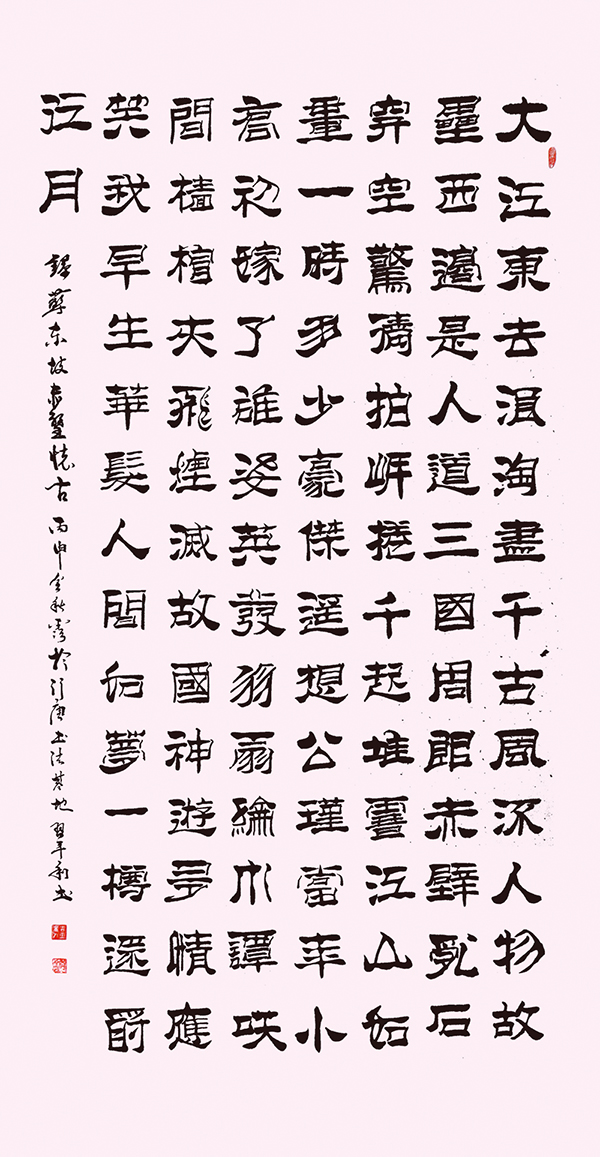 大江東去浪淘盡千古風流人物故
壘西邊是人道三国周郎赤壁亂石
穿空驚濤拍岸捲千起堆雪江山如
畫一時多少豪傑遥想公瑾當年小
喬初嫁了雄姿英發羽扇綸巾譚咲
間檣櫓灰飛煙滅故國神遊多情應
笑我早生華髮人間如夢一樽還酹
江月
録蘇东坡赤壁懷古 丙申金秋写於行唐书法基地 平利书